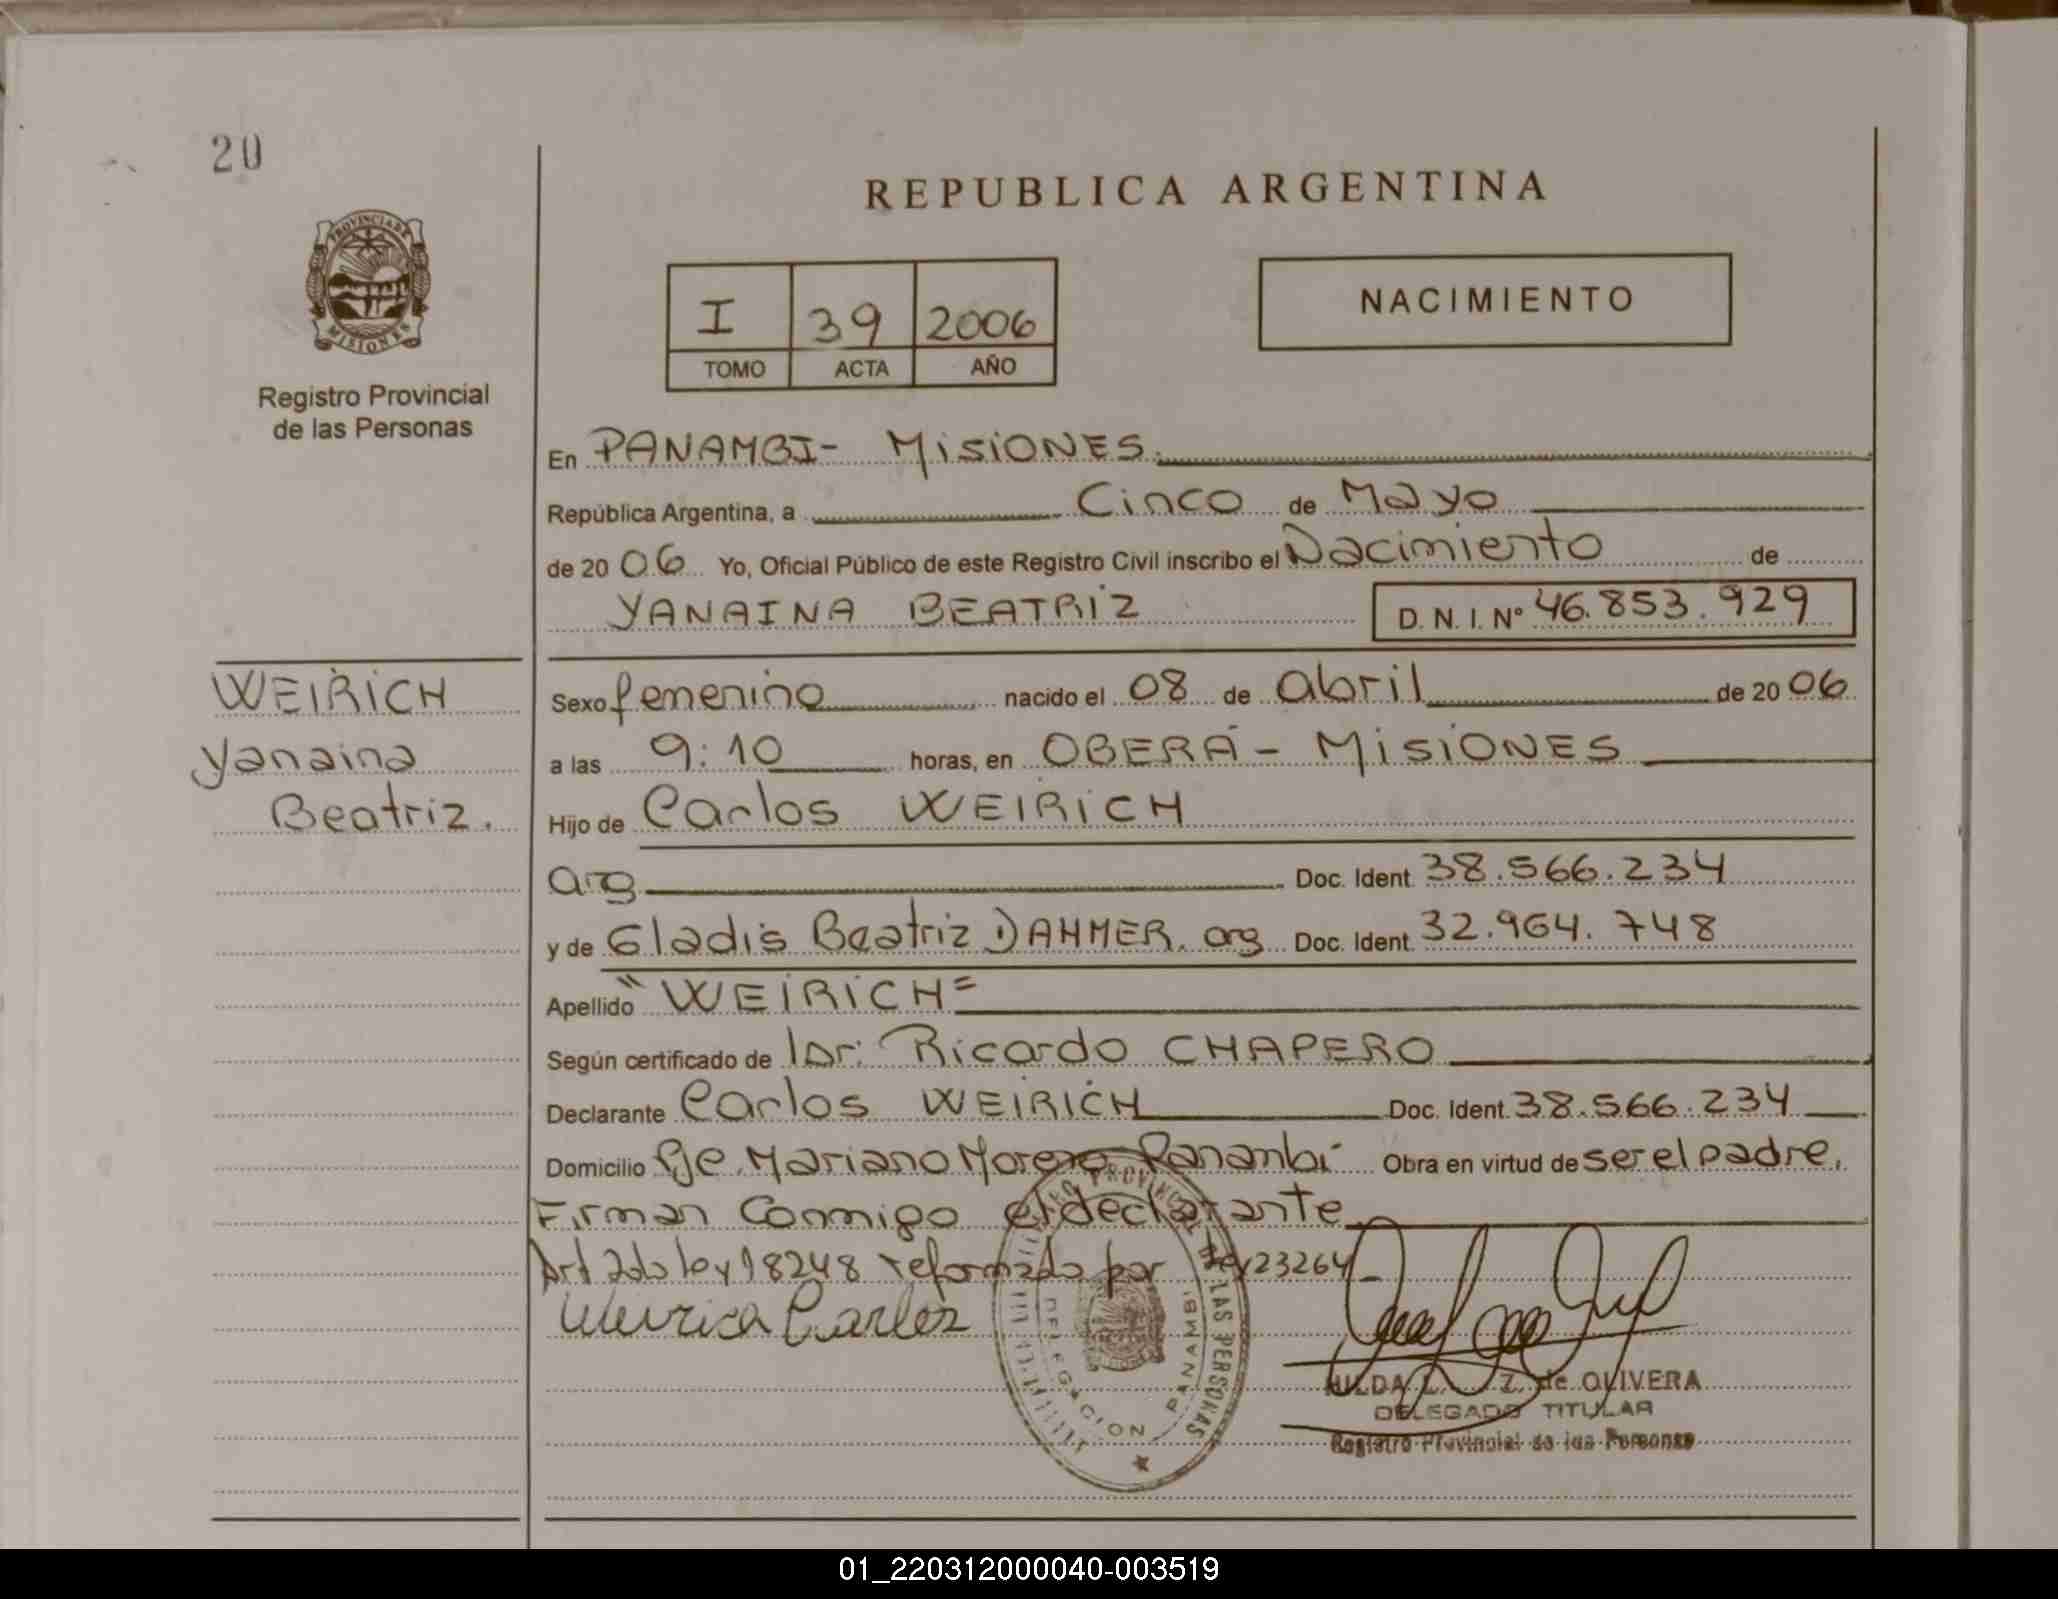 20
REPUBLICA ARGENTINA
PROVINCIA DE
MISIONES
Registro Provincial
de las Personas
I 39 2006
TOMO ACTA AÑO
NACIMIENTO
En PANAMBI- MISIONES.
República Argentina, a Cinco de Mayo
de 20 06 Yo, Oficial Público de este Registro Civil inscribo el Nacimiento de
YANAINA BEATRIZ D. N. I. Nº 46.853.929
WEIRICH
Yanaina
Beatriz.
Sexo femenino nacido el 08 de abril de 20 06
a las 9:10 horas, en OBERÁ - MISIONES
Hijo de Carlos WEIRICH
arg Doc. Ident. 38.566.234
y de Gladis Beatriz DAHMER. arg Doc. Ident. 32.964.748
Apellido "WEIRICH=
Según certificado de Dr: Ricardo CHAPERO
Declarante Carlos WEIRICH Doc. Ident. 38.566.234
Domicilio Pje Mariano Moreno Panambi Obra en virtud de ser el padre.
Firman Conmigo el declarante
Art 2do ley 18248 reformado por ley 23264
Weirich Carlos
REGISTRO PROVINCIAL DE LAS PERSONAS
DELEGACION PANAMBI
HILDA L. Z. de OLIVERA
DELEGADO TITULAR
Registro Provincial de las Personas
01_220312000040-003519